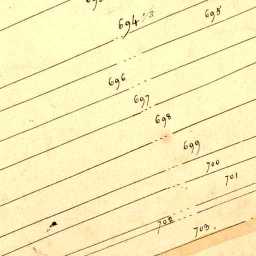 694
695
696
697
698
699
700
701
702
703.